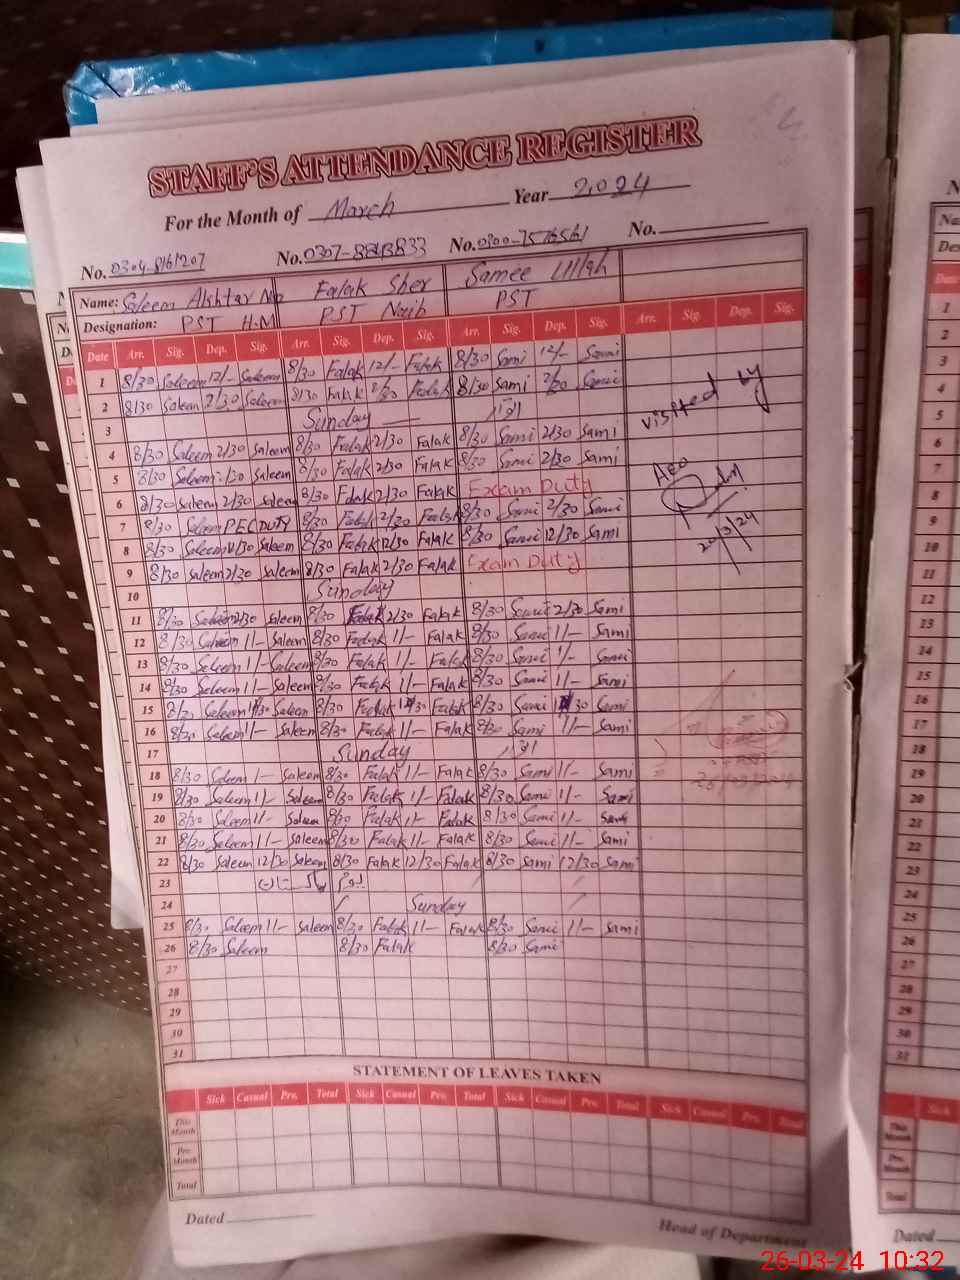 STAFF'S ATTENDANCE REGISTER
For the Month of March Year 2,024
No. No. No. No.
Name: Saleem Akhtar Falak Sher Samee Ullah
Designation: PST H.M PST Naib PST
Date Arr. Sig. Dep. Sig. Arr. Sig. Dep. Sig. Arr. Sig. Dep. Sig. Arr. Sig. Dep. Sig.
1 8/30 Saleem 12/- Saleem 8/30 Falak 12/- Falak 8/30 Sami 12/- Sami
2 8/30 Saleem 2/30 Saleem 8/30 Falak 2/30 Falak 8/30 Sami 2/30 Sami
3 Sunday
4 8/30 Saleem 2/30 Saleem 8/30 Falak 2/30 Falak 8/30 Sami 2/30 Sami
5 8/30 Saleem 2/30 Saleem 8/30 Falak 2/30 Falak 8/30 Sami 2/30 Sami
6 8/30 Saleem 2/30 Saleem 8/30 Falak 2/30 Falak Exam Duty
7 8/30 Saleem PEC DUTY 8/30 Falak 2/30 Falak 8/30 Sami 2/30 Sami
8 8/30 Saleem 12/30 Saleem 8/30 Falak 12/30 Falak 8/30 Sami 12/30 Sami
9 8/30 Saleem 2/30 Saleem 8/30 Falak 2/30 Falak Exam Duty
10 Sunday
11 8/30 Saleem 2/30 Saleem 8/30 Falak 2/30 Falak 8/30 Sami 2/30 Sami
12 8/30 Saleem 1/- Saleem 8/30 Falak 1/- Falak 8/30 Sami 1/- Sami
13 8/30 Saleem 1/- Saleem 8/30 Falak 1/- Falak 8/30 Sami 1/- Sami
14 8/30 Saleem 1/- Saleem 8/30 Falak 1/- Falak 8/30 Sami 1/- Sami
15 8/30 Saleem Saleem 8/30 Falak Falak 8/30 Sami Sami
16 8/30 Saleem 1/- Saleem 8/30 Falak 1/- Falak 8/30 Sami 1/- Sami
17 Sunday
18 8/30 Saleem 1/- Saleem 8/30 Falak 1/- Falak 8/30 Sami 1/- Sami
19 8/30 Saleem 1/- Saleem 8/30 Falak 1/- Falak 8/30 Sami 1/- Sami
20 8/30 Saleem 1/- Saleem 8/30 Falak 1/- Falak 8/30 Sami 1/- Sami
21 8/30 Saleem 1/- Saleem 8/30 Falak 1/- Falak 8/30 Sami 1/- Sami
22 8/30 Saleem 12/30 Saleem 8/30 Falak 12/30 Falak 8/30 Sami 12/30 Sami
23 یوم پاکستان
24 Sunday
25 8/30 Saleem 1/- Saleem 8/30 Falak 1/- Falak 8/30 Sami 1/- Sami
26 8/30 Saleem 8/30 Falak 8/30 Sami
27
28
29
30
31
visited by
AEO
20/3/24
STATEMENT OF LEAVES TAKEN
Sick Casual Prv. Total Sick Casual Prv. Total Sick Casual Prv. Total Sick Casual Prv. Total
This Month
Pre. Month
Total
Dated
Head of Department
1
2
3
4
5
6
7
8
9
10
11
12
13
14
15
16
17
18
19
20
21
22
23
24
25
26
27
28
29
30
31
Sick
This Month
Pre. Month
Total
Dated
26-03-24 10:32